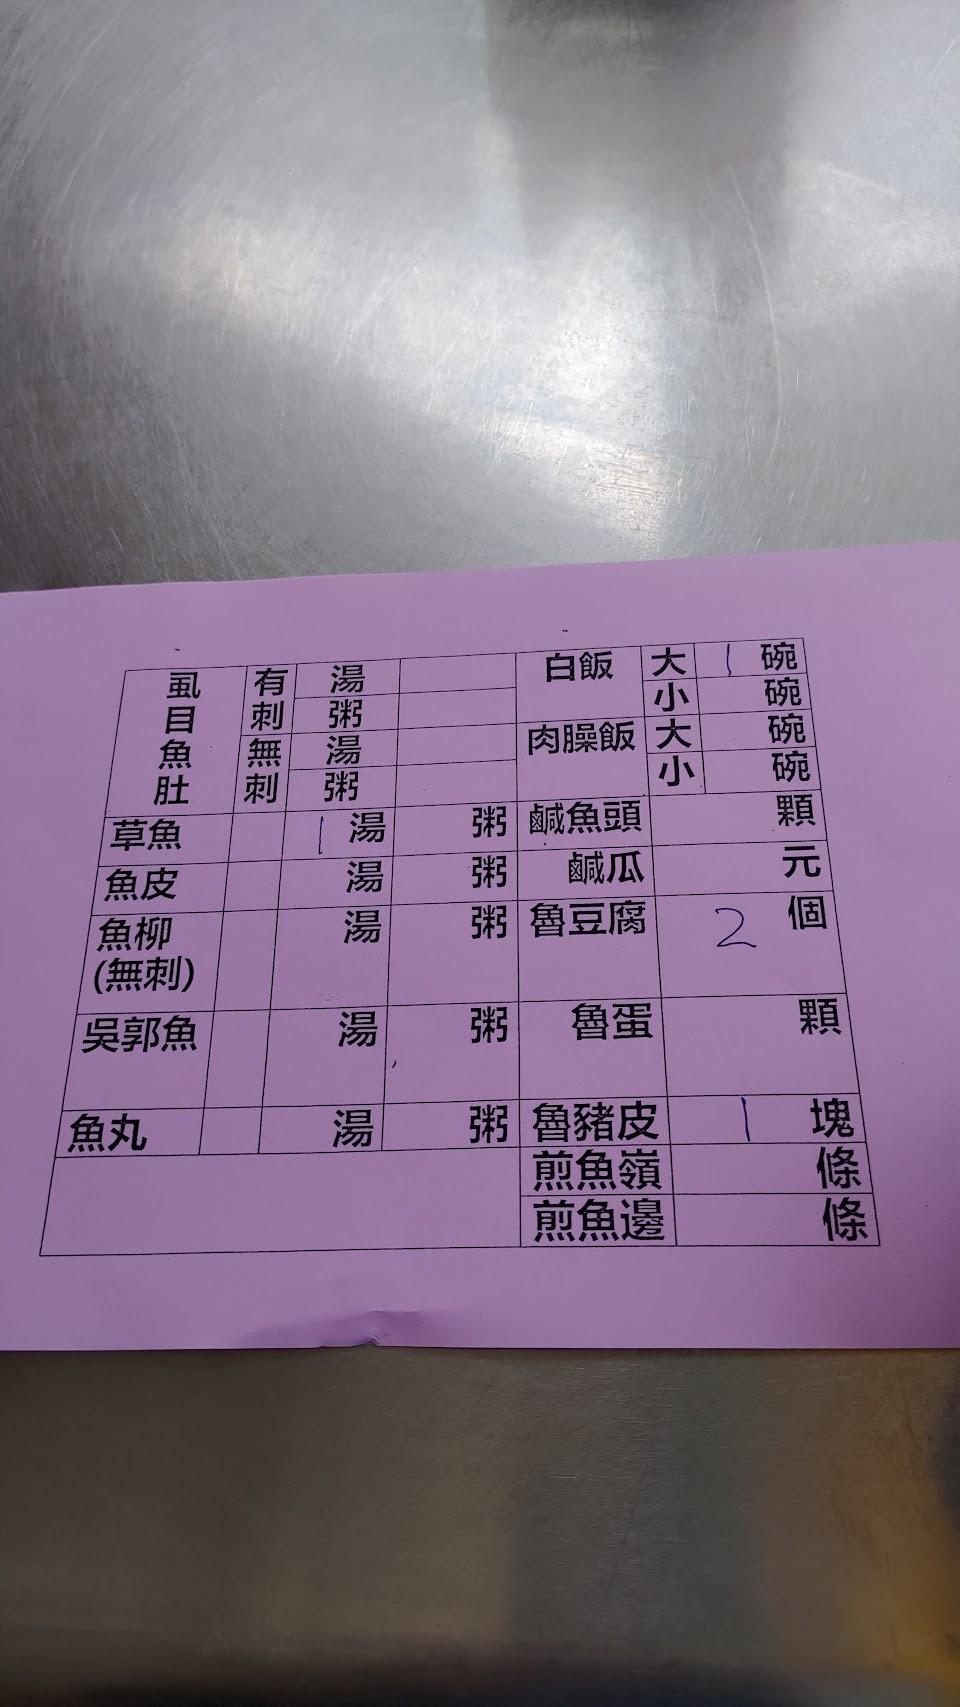 虱目魚肚 有刺 湯 白飯 大 1 碗
粥 小 碗
無刺 湯 肉臊飯 大 碗
粥 小 碗
草魚 1 湯 粥 鹹魚頭 顆
魚皮 湯 粥 鹹瓜 元
魚柳 湯 粥 魯豆腐 2 個
(無刺)
吳郭魚 湯 粥 魯蛋 顆
魚丸 湯 粥 魯豬皮 1 塊
煎魚嶺 條
煎魚邊 條